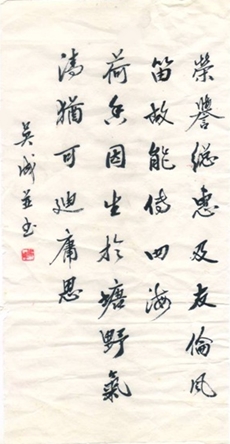 榮譽總惠及友倫風
笛故能傳四海
荷香因生於塘野氣
清猶可迪庸思
吳成並書